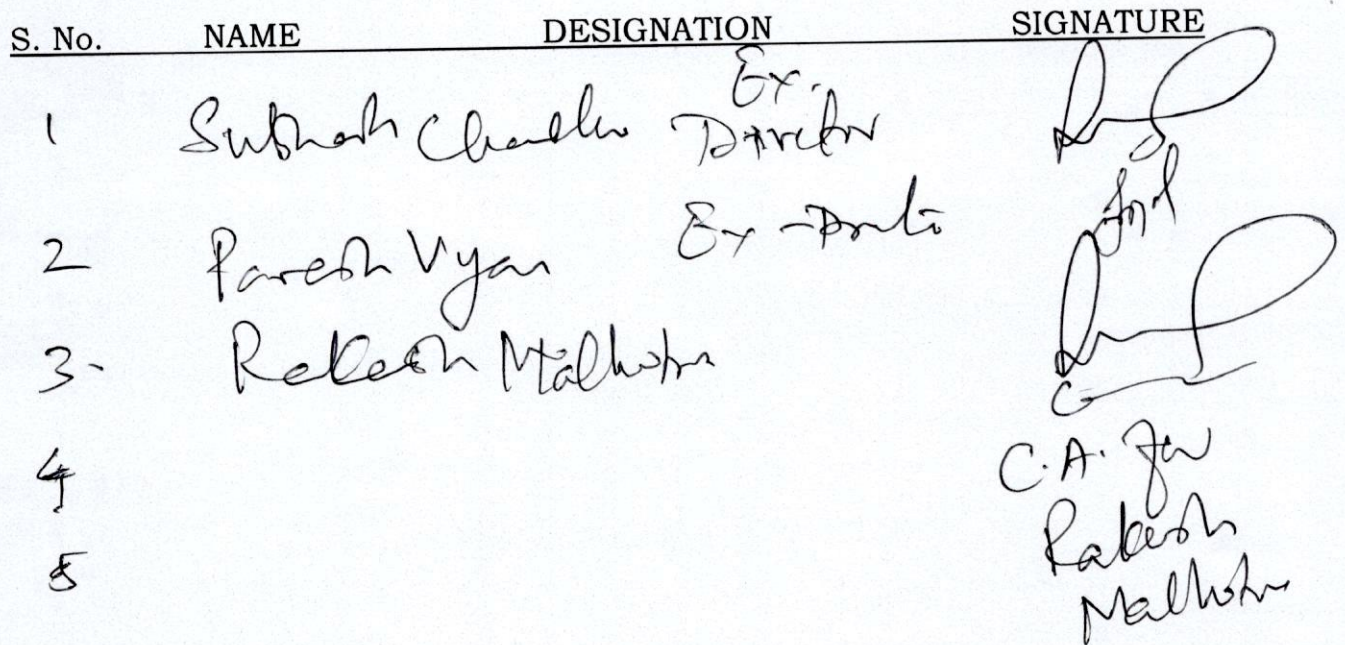 S. No. NAME DESIGNATION SIGNATURE
1 Subhash Chander Ex. Director
2 Paresh Vyas Ex-
3- Rakesh Malhotra
4 C.A. for
5 Rakesh
Malhotra